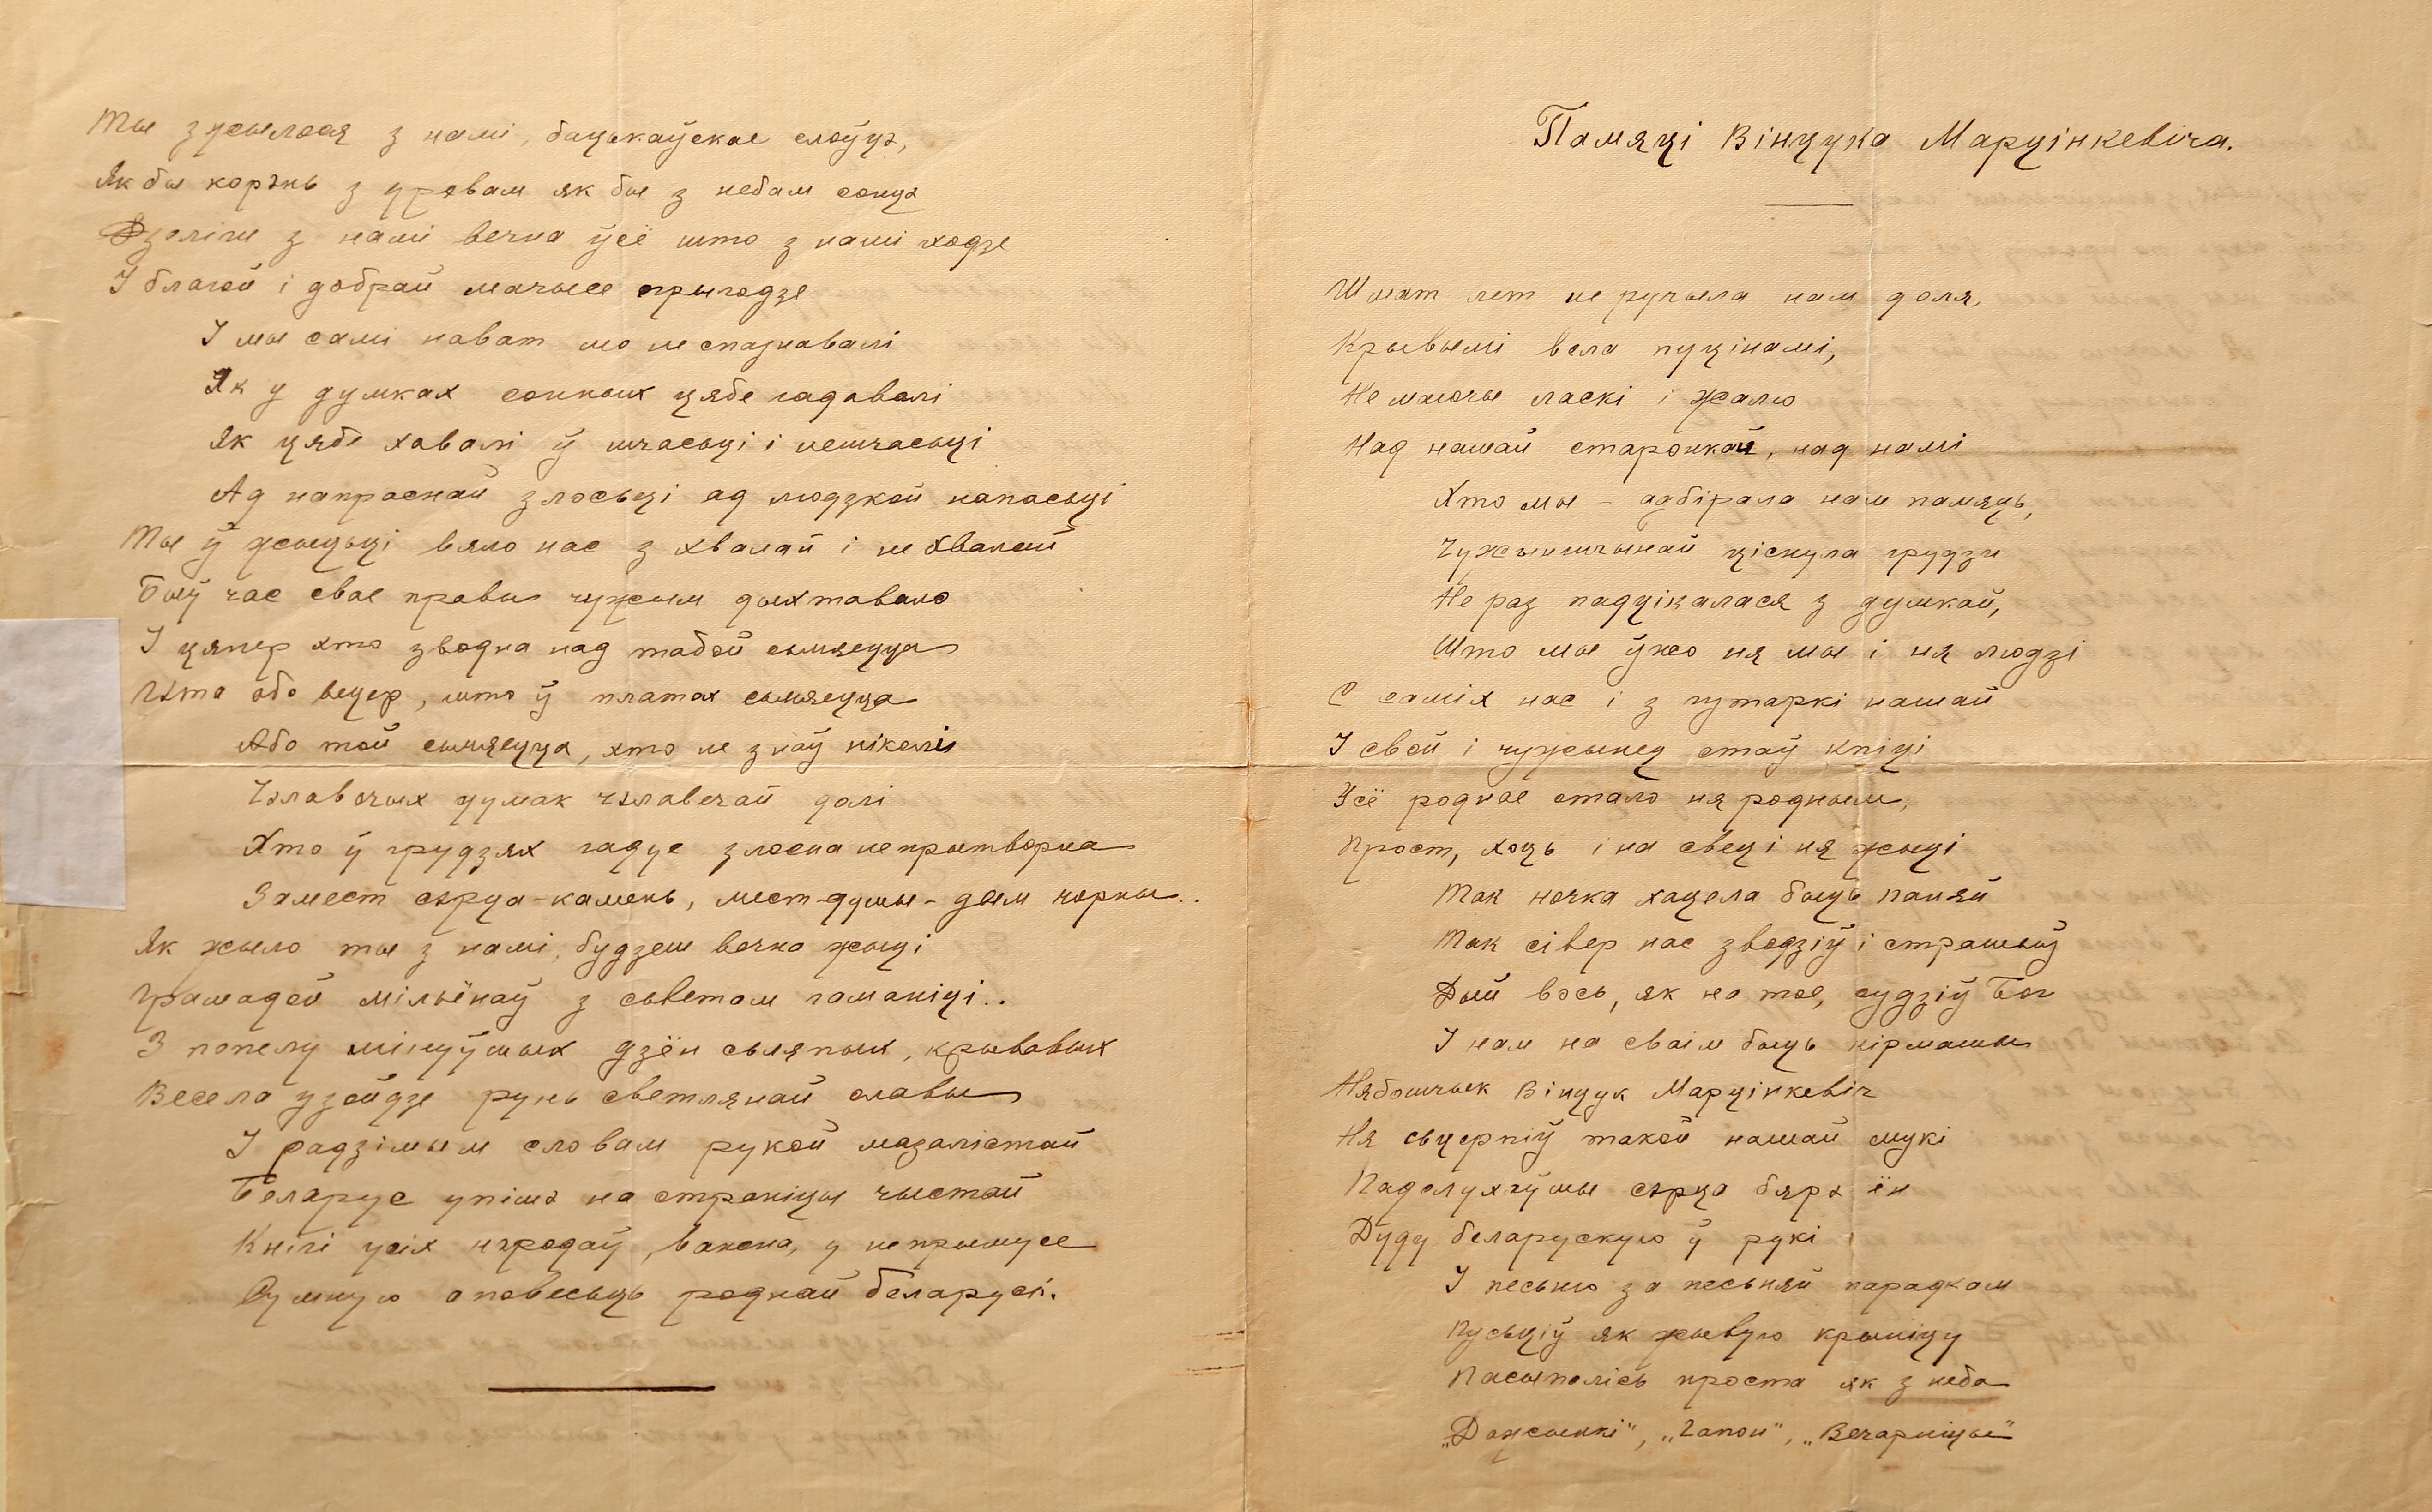 Ты зжылося з намі, бацькаўскае слоўцэ,
Як бы корэнь з дрэвам як бы з небам сонцэ
Дзеліш з намі вечна ўсё што з намі ходзе
І благой і добрай мачысе прыгодзе
І мы самі нават мо не спазнавалі
Як у думках сонных цябе гадавалі
Як цябе хавалі ў шчасьці і нешчасьці
Ад напраснай злосьці ад людзкой напасьці
Ты ў жыцьці вяло нас з хвалай і не хвалай
Быў час свае правы чужым дыхтавало
І цяпер хто зводна над табой сьмяецца
Хіба або вецер, што ў платах сьмяецца
Або той сьмяецца, хто не знаў ніколі
Чэлавечых думак чэлавечай долі
Хто ў грудзях гадуе злосна непрытворна
Замест сэрца-камень, мест-душы-дым чорны..
Як жыло ты з намі, будзеш вечна жыці
Грамадой мільёнаў з сьветам гаманіці..
З попелу мінуўшых дзён сьляпых, крывавых
Весела узойдзе рунь светлянай славы
І радзімым словам рукой мазалістай
Беларус упішэ на страніцы чыстай
Кнігі усіх народаў, важна, у непрымусе
Думную аповесьць роднай беларусі.
Памяці Вінцука Марцінкевіча.
Шмат лет не ручыла нам доля,
Крывымі вела пуцінамі,
Не маючы ласкі і жалю
Над нашай старонкай, над намі
Хто мы – адбірала нам памяць,
Чужыншчынай ціснула грудзи
Не раз падціналася з думкай,
Што мы ўжо ня мы і ня людзі
С саміх нас і з гутаркі нашай
І свой і чужынец стаў кпіці
Усё роднае стало ня родным,
Прост, хоць і на свеці ня жыці
Так ночка хацела быць паняй
Так сівер нас зводзіў і страшыў
Дый вось, як на тое, судзіў Бог
І нам на сваім быць кірмашы
Нябошчык Вінцук Марцінкевіч
Ня сьцерпіў такой нашай мукі
Падслухаўшы сэрца бярэ ён
Дуду беларускую ў рукі
І песьню за песьняй парадкам
Пусьціў як жывую крыніцу
Пасыпалісь проста як з неба
„Дажынкі", „Гапон", „Вечарніцы"